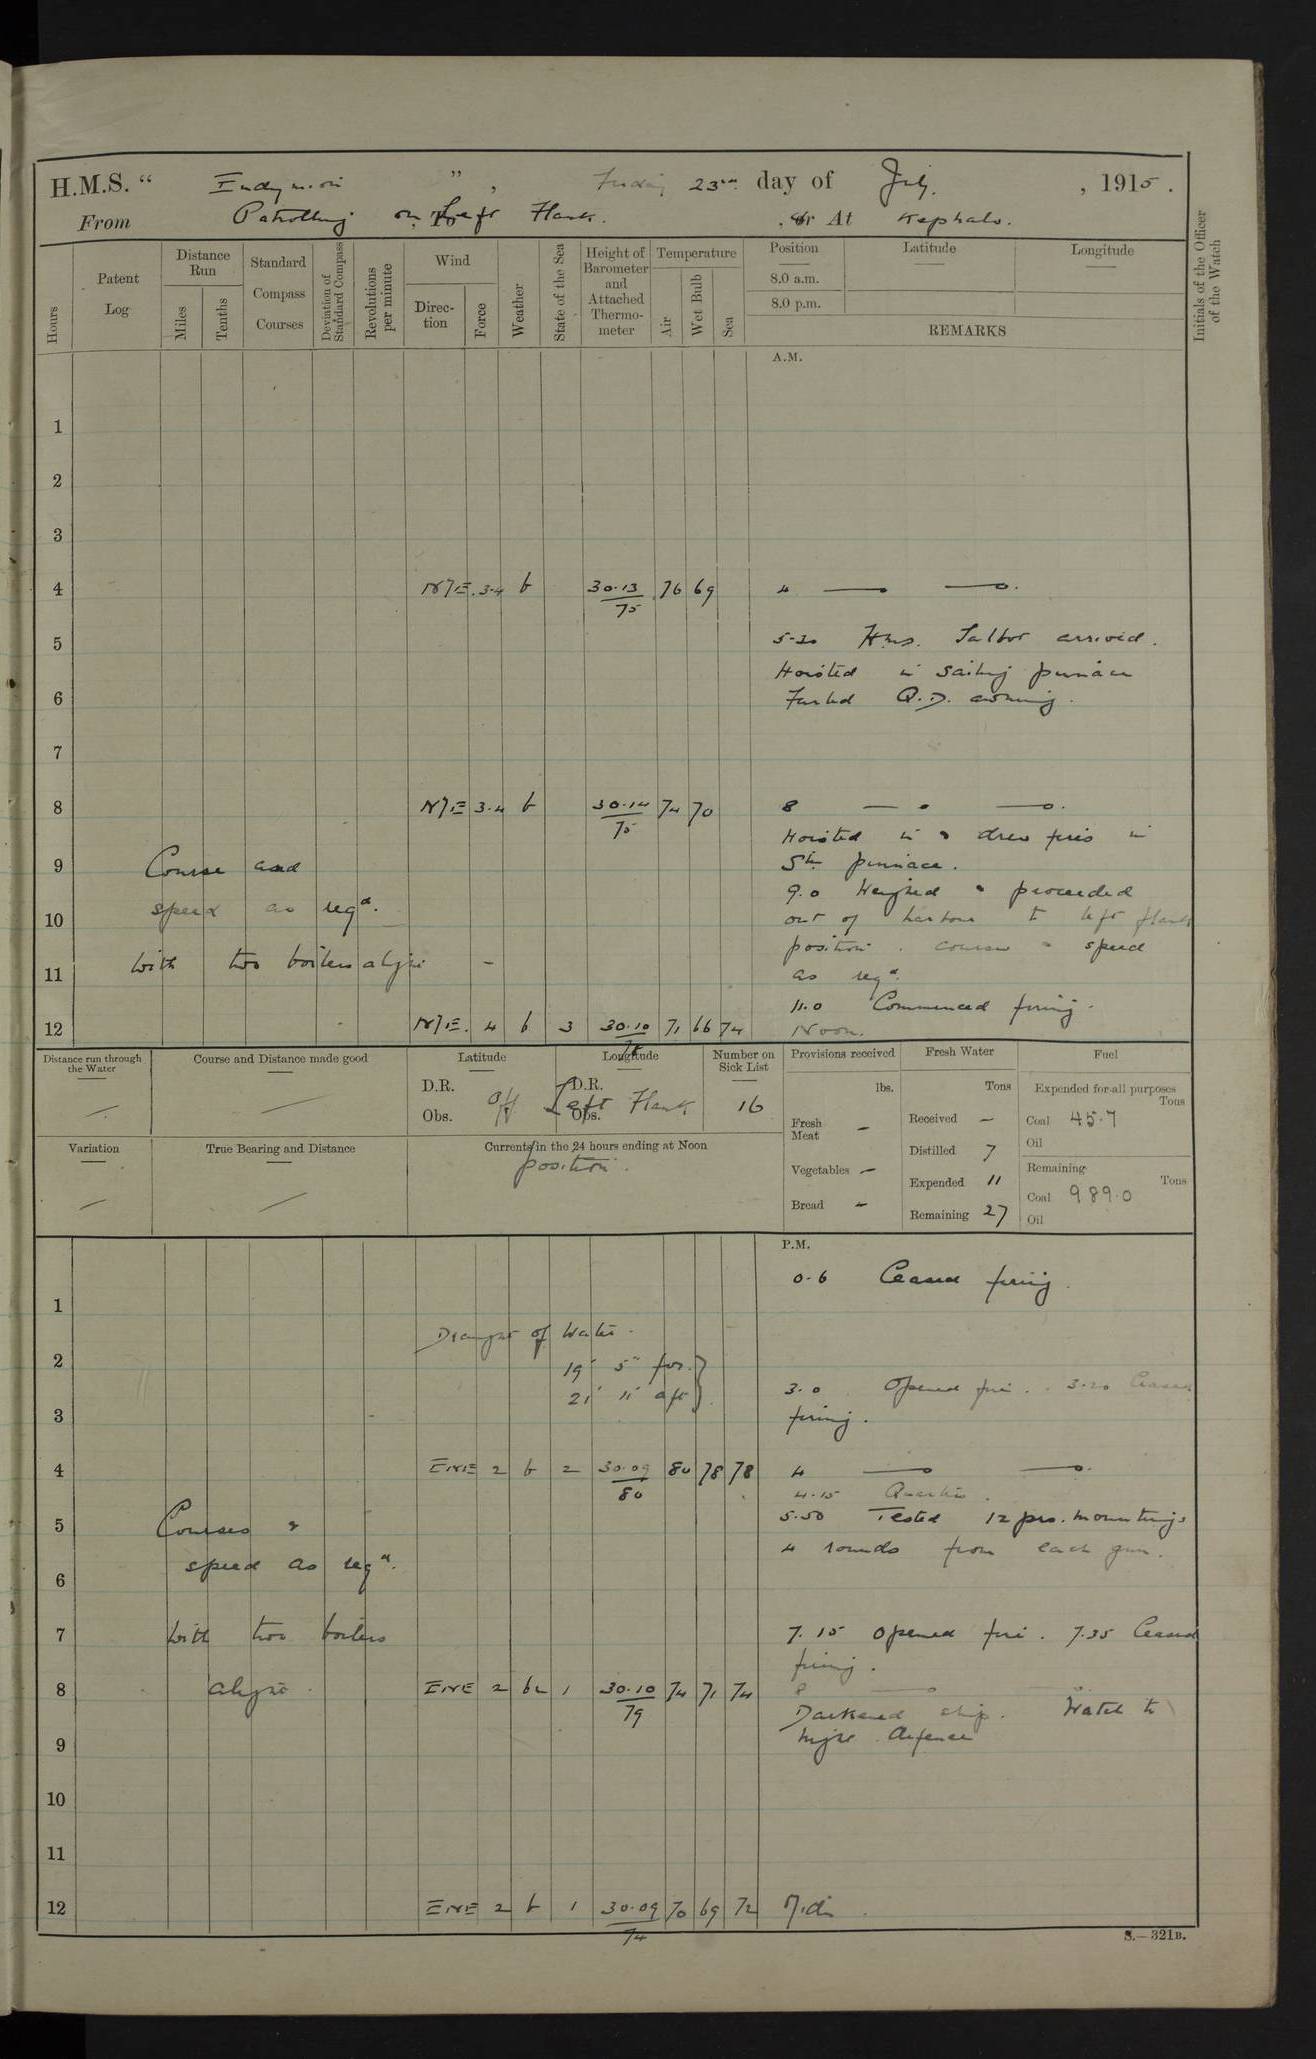 H.M.S. “ Endymion ”, Friday 23rd day of July, 1915.
From Patrolling on Left Flank. , or At Kephalo.
Hours
Patent Log
Distance Run
Miles
Tenths
Standard Compass Courses
Deviation of Standard Compass
Revolutions per minute
Wind
Direction
Force
Weather
State of the Sea
Height of Barometer and Attached Thermometer
Temperature
Air
Wet Bulb
Sea
Position
8.0 a.m.
8.0 p.m.
Latitude
Longitude
REMARKS
Initials of the Officer of the Watch
A.M.
1
2
3
4 NE. 3-4 b 30.13/75 76 69 4 — —.
5 5-20 H.M.S. Talbot arrived.
Hoisted in sailing pinnace
6 Furled Q.D. awning.
7
8 NE 3.4 b 30.14/75 74 70 8 — —.
Hoisted in & drew fires in
9 Course and Stm pinnace.
9.0 Weighed & proceeded
10 speed as reqd. out of harbour to left flank
position. course & speed
11 with two boilers alight - as reqd.
11.0 Commenced firing.
12 NE. 4 b 3 30.10/75 71 66 74 Noon.
Distance run through the Water
—
Course and Distance made good
—
Latitude
D.R.
Obs.
Longitude
D.R.
Obs.
Off Left Flank
position.
Number on Sick List
16
Variation
—
True Bearing and Distance
—
Currents in the 24 hours ending at Noon
Provisions received
lbs.
Fresh Meat -
Vegetables -
Bread -
Fresh Water
Tons
Received -
Distilled 7
Expended 11
Remaining 27
Fuel
Expended for all purposes
Tons
Coal 45.7
Oil
Remaining
Tons
Coal 989.0
Oil
P.M.
0.6 Ceased firing.
1
Draught of Water.
2 19' 5" for.
21' 11" aft
3.0 Opened fire. 3.20 Ceased
3 firing.
4 ENE 2 b 2 30.09/80 80 78 78 4 — —.
4.15 Quarters.
5 Courses & 5.50 Tested 12 prs. mountings
speed as reqd. 4 rounds from each gun.
6
7 with two boilers 7.15 Opened fire. 7.35 Ceased
firing.
8 alight. ENE 2 bc 1 30.10/79 74 71 74 8 —
Darkened ship. Watch to
9 night defence
10
11
12 ENE 2 b 1 30.09/74 70 69 72 Mid.
S.—321B.